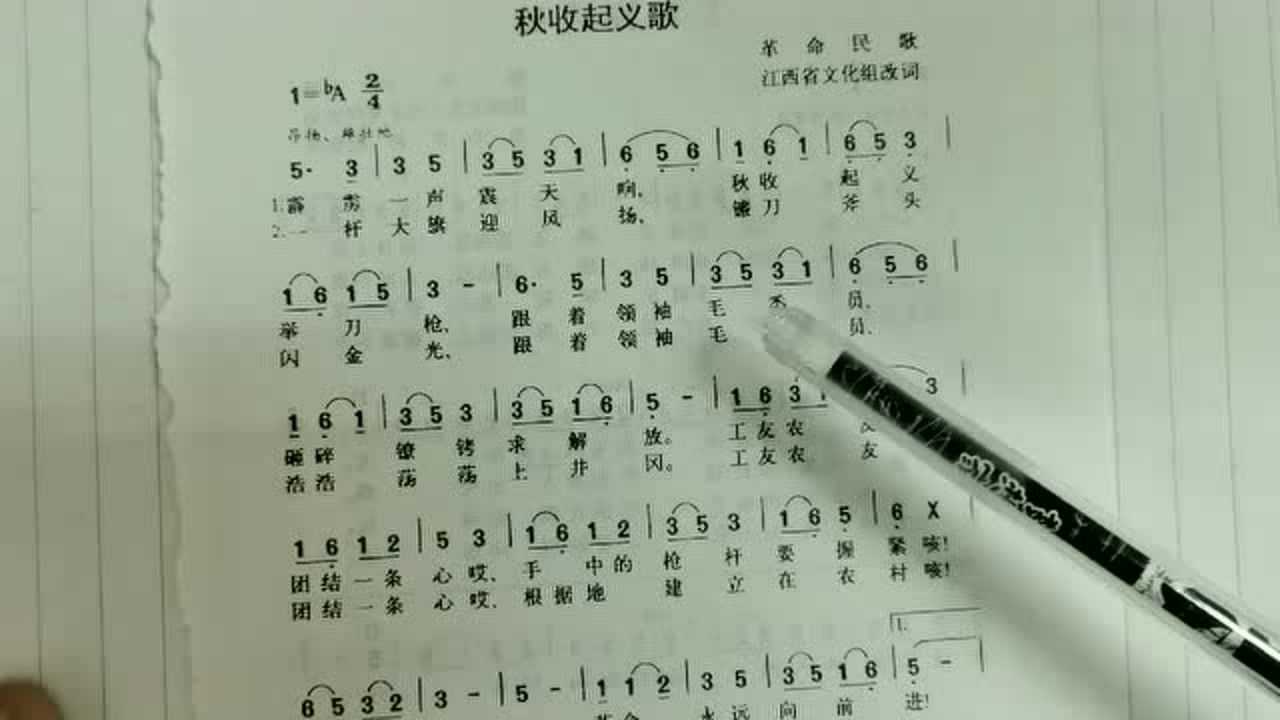 秋收起义歌
革命民歌
1=bA 2/4
江西省文化组改词
昂扬、雄壮地
5· 3 | 3 5 | 3 5 3 1 | 6 5 6 | 1 6 1 | 6 5 3 |
1.霹雳一声震天响、秋收起义
2.一杆大旗迎风扬、镰刀斧头
1 6 1 5 | 3 - | 6· 5 | 3 5 | 3 5 3 1 | 6 5 6 |
举刀枪、跟着领袖毛委员、
闪金光、跟着领袖毛 员、
1 6 1 | 3 5 3 | 3 5 1 6 | 5 - | 1 6 3 1 3 |
砸碎镣铐求解放。工友农友
浩浩荡荡上井冈。工友农友
1 6 1 2 | 5 3 | 1 6 1 2 | 3 5 3 | 1 6 5 | 6 X
团结一条心哎、手中的枪杆要握紧咳!
团结一条心哎、根据地建立在农村咳!
1.
6 5 3 2 | 3 - | 5 - | 1 1 2 | 3 5 | 3 5 1 6 | 5 - |
永远向前进!